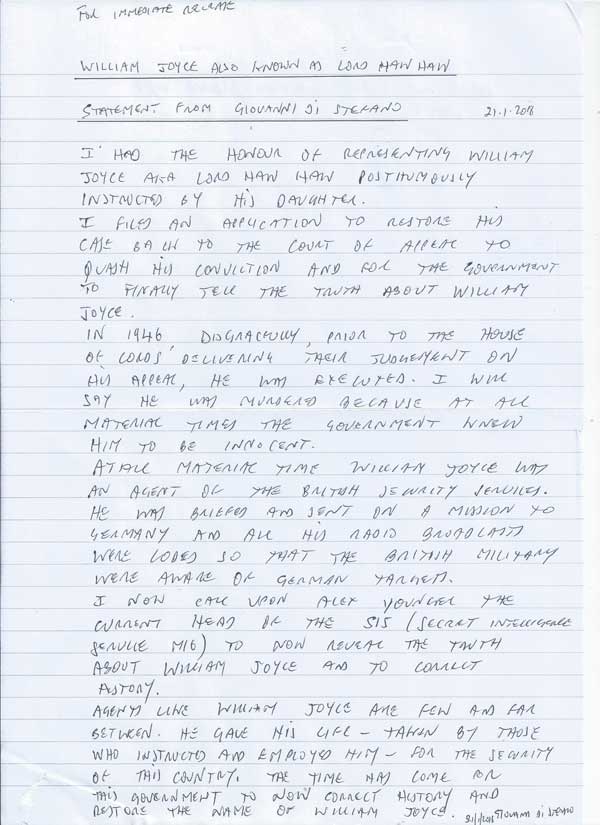 FOR IMMEDIATE RELEASE
WILLIAM JOYCE ALSO KNOWN AS LORD HAW HAW
STATEMENT FROM GIOVANNI DI STEFANO 21.1.2018
I HAD THE HONOUR OF REPRESENTING WILLIAM
JOYCE AKA LORD HAW HAW POSTHUMOUSLY
INSTRUCTED BY HIS DAUGHTER.
I FILED AN APPLICATION TO RESTORE HIS
CASE BACK TO THE COURT OF APPEAL TO
QUASH HIS CONVICTION AND FOR THE GOVERNMENT
TO FINALLY TELL THE TRUTH ABOUT WILLIAM
JOYCE.
IN 1946, DISGRACEFULLY, PRIOR TO THE HOUSE
OF LORDS DELIVERING THEIR JUDGEMENT ON
HIS APPEAL, HE WAS EXECUTED. I WILL
SAY HE WAS MURDERED BECAUSE AT ALL
MATERIAL TIMES THE GOVERNMENT KNEW
HIM TO BE INNOCENT.
AT ALL MATERIAL TIME WILLIAM JOYCE WAS
AN AGENT OF THE BRITISH SECURITY SERVICES.
HE WAS BRIEFED AND SENT ON A MISSION TO
GERMANY AND ALL HIS RADIO BROADCASTS
WERE CODED SO THAT THE BRITISH MILITARY
WERE AWARE OF GERMAN TARGETS.
I NOW CALL UPON ALEX YOUNGER THE
CURRENT HEAD OF THE SIS (SECRET INTELLIGENCE
SERVICE MI6) TO NOW REVEAL THE TRUTH
ABOUT WILLIAM JOYCE AND TO CORRECT
HISTORY.
AGENTS LIKE WILLIAM JOYCE ARE FEW AND FAR
BETWEEN. HE GAVE HIS LIFE - TAKEN BY THOSE
WHO INSTRUCTED AND EMPLOYED HIM - FOR THE SECURITY
OF THIS COUNTRY. THE TIME HAS COME FOR
THIS GOVERNMENT TO NOW CORRECT HISTORY AND
RESTORE THE NAME OF WILLIAM JOYCE. GIOVANNI DI STEFANO